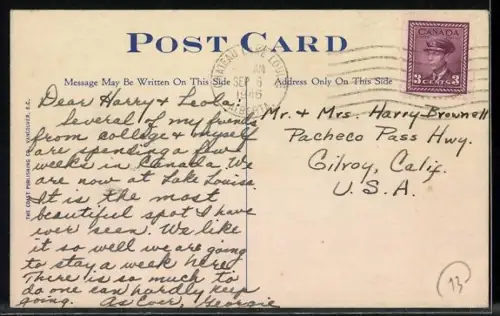 POST CARD
CHATEAU LAKE LOUISE
AM
SEP 6
1946
ALBERTA
CANADA
3 CENTS 3
Message May Be Written On This Side
Address Only On This Side
Dear Harry & Leola:
Several of my friends
from college & myself
are spending a few
weeks in Canada. We
are now at Lake Louise.
It is the most
beautiful spot I have
ever seen. We like
it so well we are going
to stay a week here.
There is so much to
do one can hardly keep
going. As Ever, Georgie
Mr. & Mrs. Harry Brownell
Pacheco Pass Hwy.
Gilroy, Calif.
U.S.A.
THE COAST PUBLISHING CO. VANCOUVER, B.C.
13